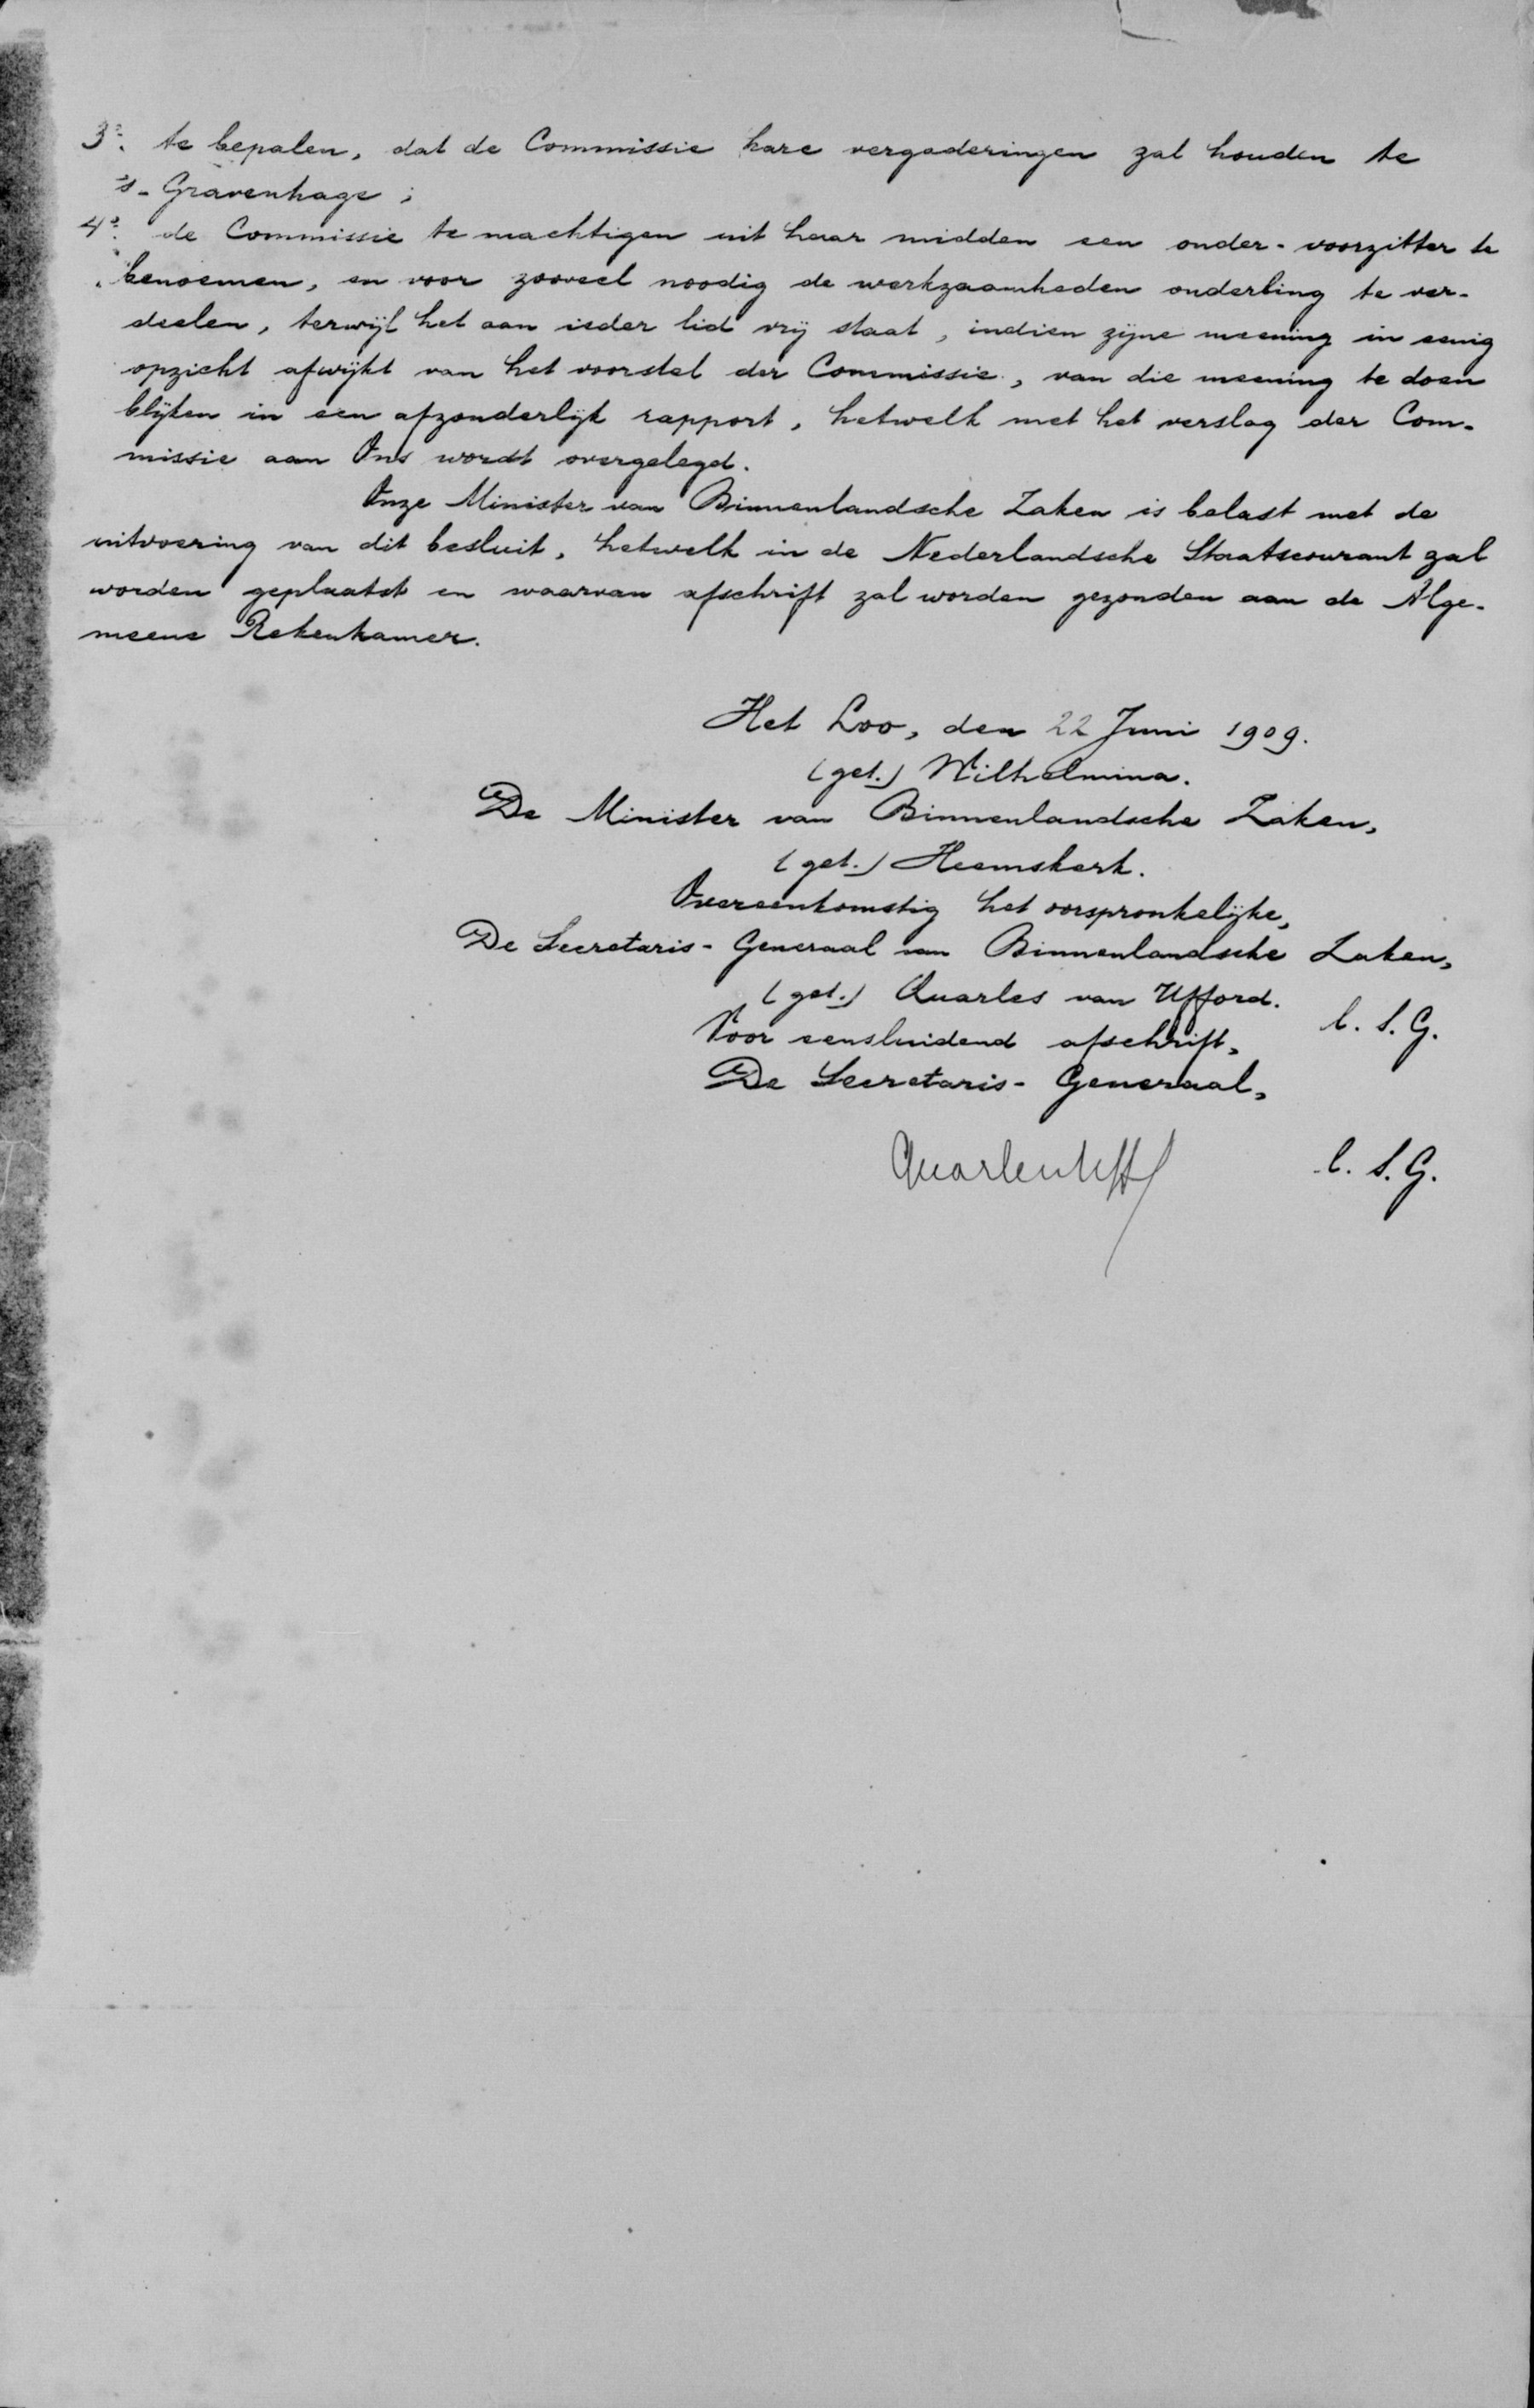 3º. te bepalen, dat de Commissie hare vergaderingen zal houden te
's-Gravenhage;
4º. de Commissie te machtigen uit haar midden een onder-voorzitter te
benoemen, en voor zooveel noodig de werkzaamheden onderling te ver-
deelen, terwijl het aan ieder lid vrij staat, indien zijne meening in eenig
opzicht afwijkt van het voorstel der Commissie, van die meening te doen
blijken in een afzonderlijk rapport, hetwelk met het verslag der Com-
missie aan Ons wordt overgelegd.
Onze Minister van Binnenlandsche Zaken is belast met de
uitvoering van dit besluit, hetwelk in de Nederlandsche Staatscourant zal
worden geplaatst en waarvan afschrift zal worden gezonden aan de Alge-
meene Rekenkamer.
Het Loo, den 22 Juni 1909.
(get.) Wilhelmina.
De Minister van Binnenlandsche Zaken,
(get.) Heemskerk.
Overeenkomstig het oorspronkelijke,
De Secretaris-Generaal van Binnenlandsche Zaken,
(get.) Quarles van Ufford.
l. S. G.
Voor eensluidend afschrift,
De Secretaris-Generaal,
l. S. G.